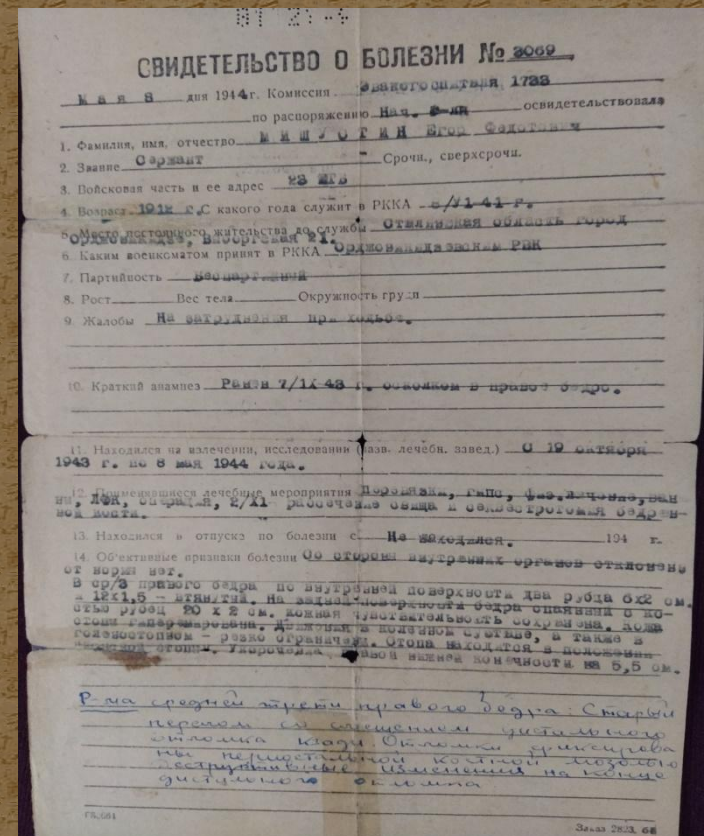 СВИДЕТЕЛЬСТВО О БОЛЕЗНИ № 3069
Мая 8 дня 1944г. Комиссия Эвакогоспиталя 1733
по распоряжению Нач. освидетельствовала
1. Фамилия, имя, отчество МИШУСТИН Егор Федотович
2. Звание Сержант Срочн., сверхсрочн.
3. Войсковая часть и ее адрес 23
4. Возраст 1912 г. С какого года служит в РККА 41 г.
5. Место постоянного жительства до службы Сталинская область город
Орджоникидзе, Выборгская 21.
6. Каким военкоматом принят в РККА Орджоникидзевским РВК
7. Партийность Беспартийный
8. Рост Вес тела Окружность груди
9. Жалобы На затруднения при ходьбе.
10. Краткий анамнез Ранен 7/IX 43 г. осколком в правое бедро.
11. Находился на излечении, исследовании (назв. лечебн. завед.) С 19 октября
1943 г. по 8 мая 1944 года.
12. Применявшиеся лечебные мероприятия Перевязка, гипс, физ.лечение, ван
ны, ЛФК, операция, 2/XI рассечение свища и секвестротомия бедрен-
ной кости.
13. Находился в отпуске по болезни с Не находился. 194 г.
14. Об'ективные признаки болезни Со стороны внутренних органов отклонено
от норми нет.
В ср/3 правого бедра по внутренней поверхности два рубца 6х2 см.
и 12х1,5 – втянутый. На задней поверхности бедра спаянный с ко-
стью рубец 20 х 2 см. кожная чувствительность сохранена. Кожа
стопы гиперемирована. Движения в коленном суставе, а также в
голеностопном – резко ограничен. Стопа находится в положении
стопы. Укорочение правой нижней конечности на 5,5 см.
Р-ма средней трети правого бедра: Старый
перелом со смещением дистального
отломка кзади Отломки фиксирова
ны периостальной костной мозолью
Деструктивные изменения на конце
дистального отломка
Заказ 2823.